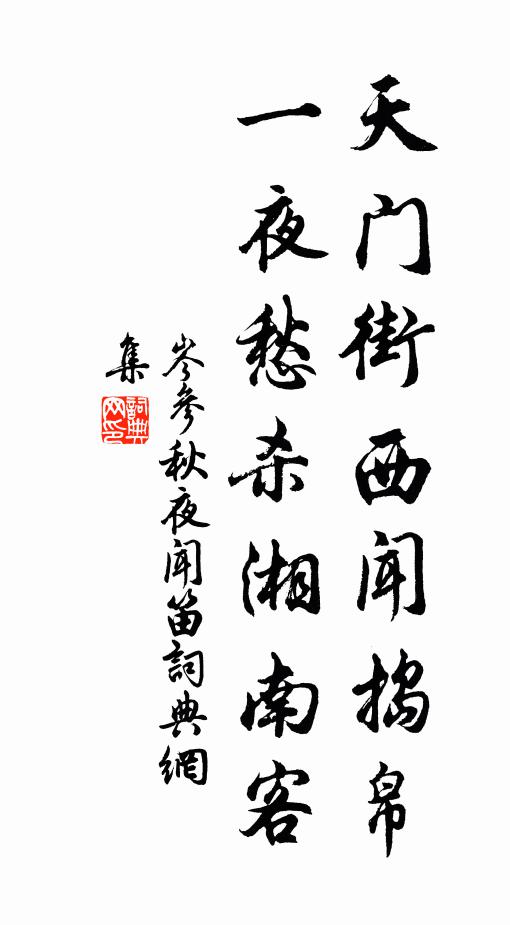 天门街西闻捣帛
一夜愁杀湘南客
岑参秋夜闻笛词典網
集
詞典
网印